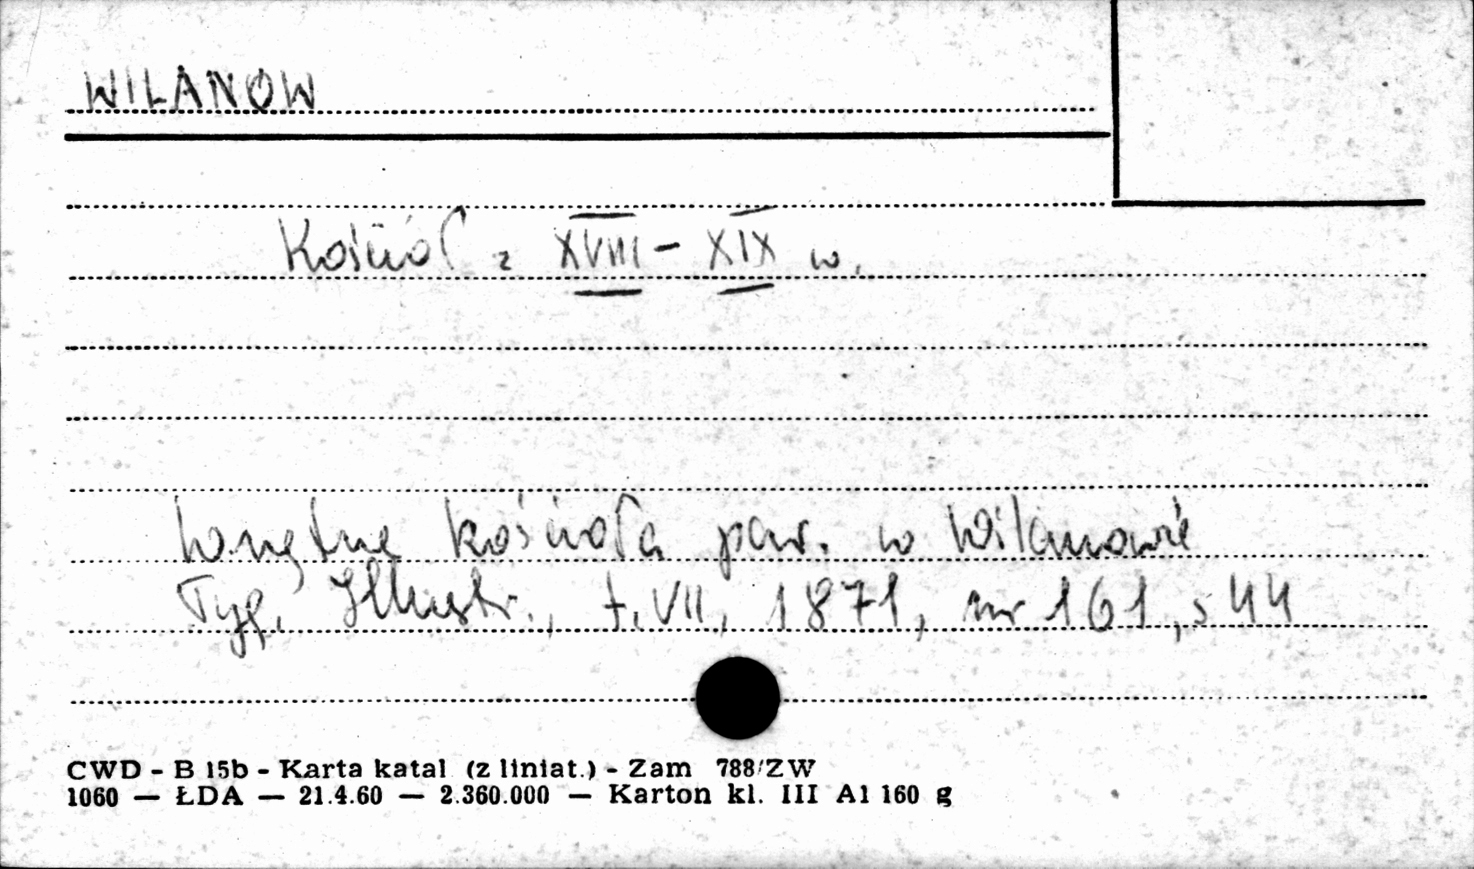 WILANÓW
Kościół z XVIII - XIX w.
Wnętrze kościoła par. w Wilanowie
Tyg. Illustr., t. VII, 1871, nr 161, s 44
CWD - B 15b - Karta katal (z liniat.) - Zam 788/ZW
1060 — ŁDA — 21.4.60 — 2.360.000 — Karton kl. III A1 160 g